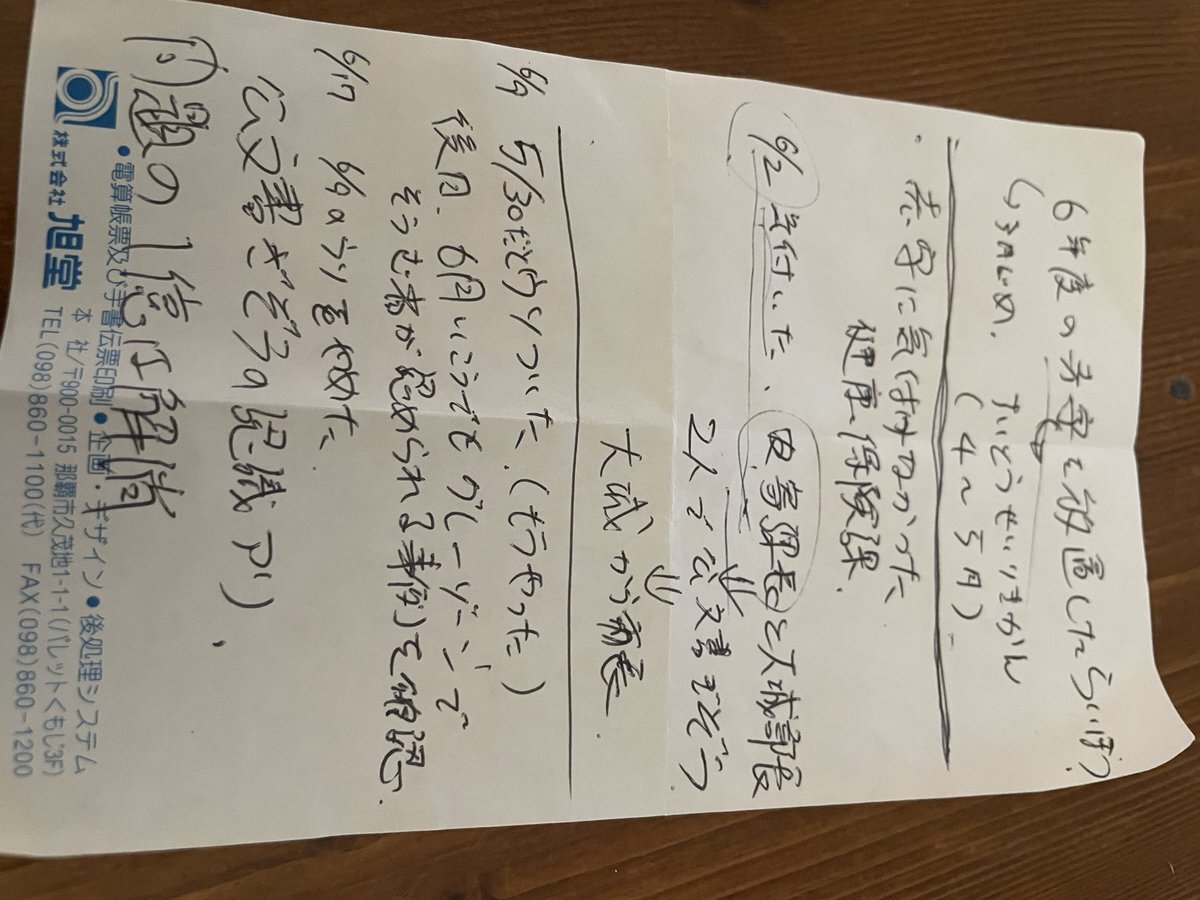 6年度の赤字を放置したらいほう?
しょるいの、すいとうせいりきかん
(4〜5月)
赤字に気付けなかった
健康保険課
6/2 気付いた、安寄課長と大城部長
2人で公文書ぎぞう
大城から
6/9 5/30だとウソついた。(もうやった)
後日、6月いこうでもグレーゾーンで
そうむ省が認められる事例)を確認
6/17 6/9のウソを認めた
公文書ぎぞうの認識アリ
問題の1億は解消
株式会社 旭堂
●電算帳票及び手書伝票印刷●企画・デザイン●後処理システム
本社/〒900-0015 那覇市久茂地1-1-1(パレットくもじ3F)
TEL(098)860-1100(代) FAX(098)860-1200